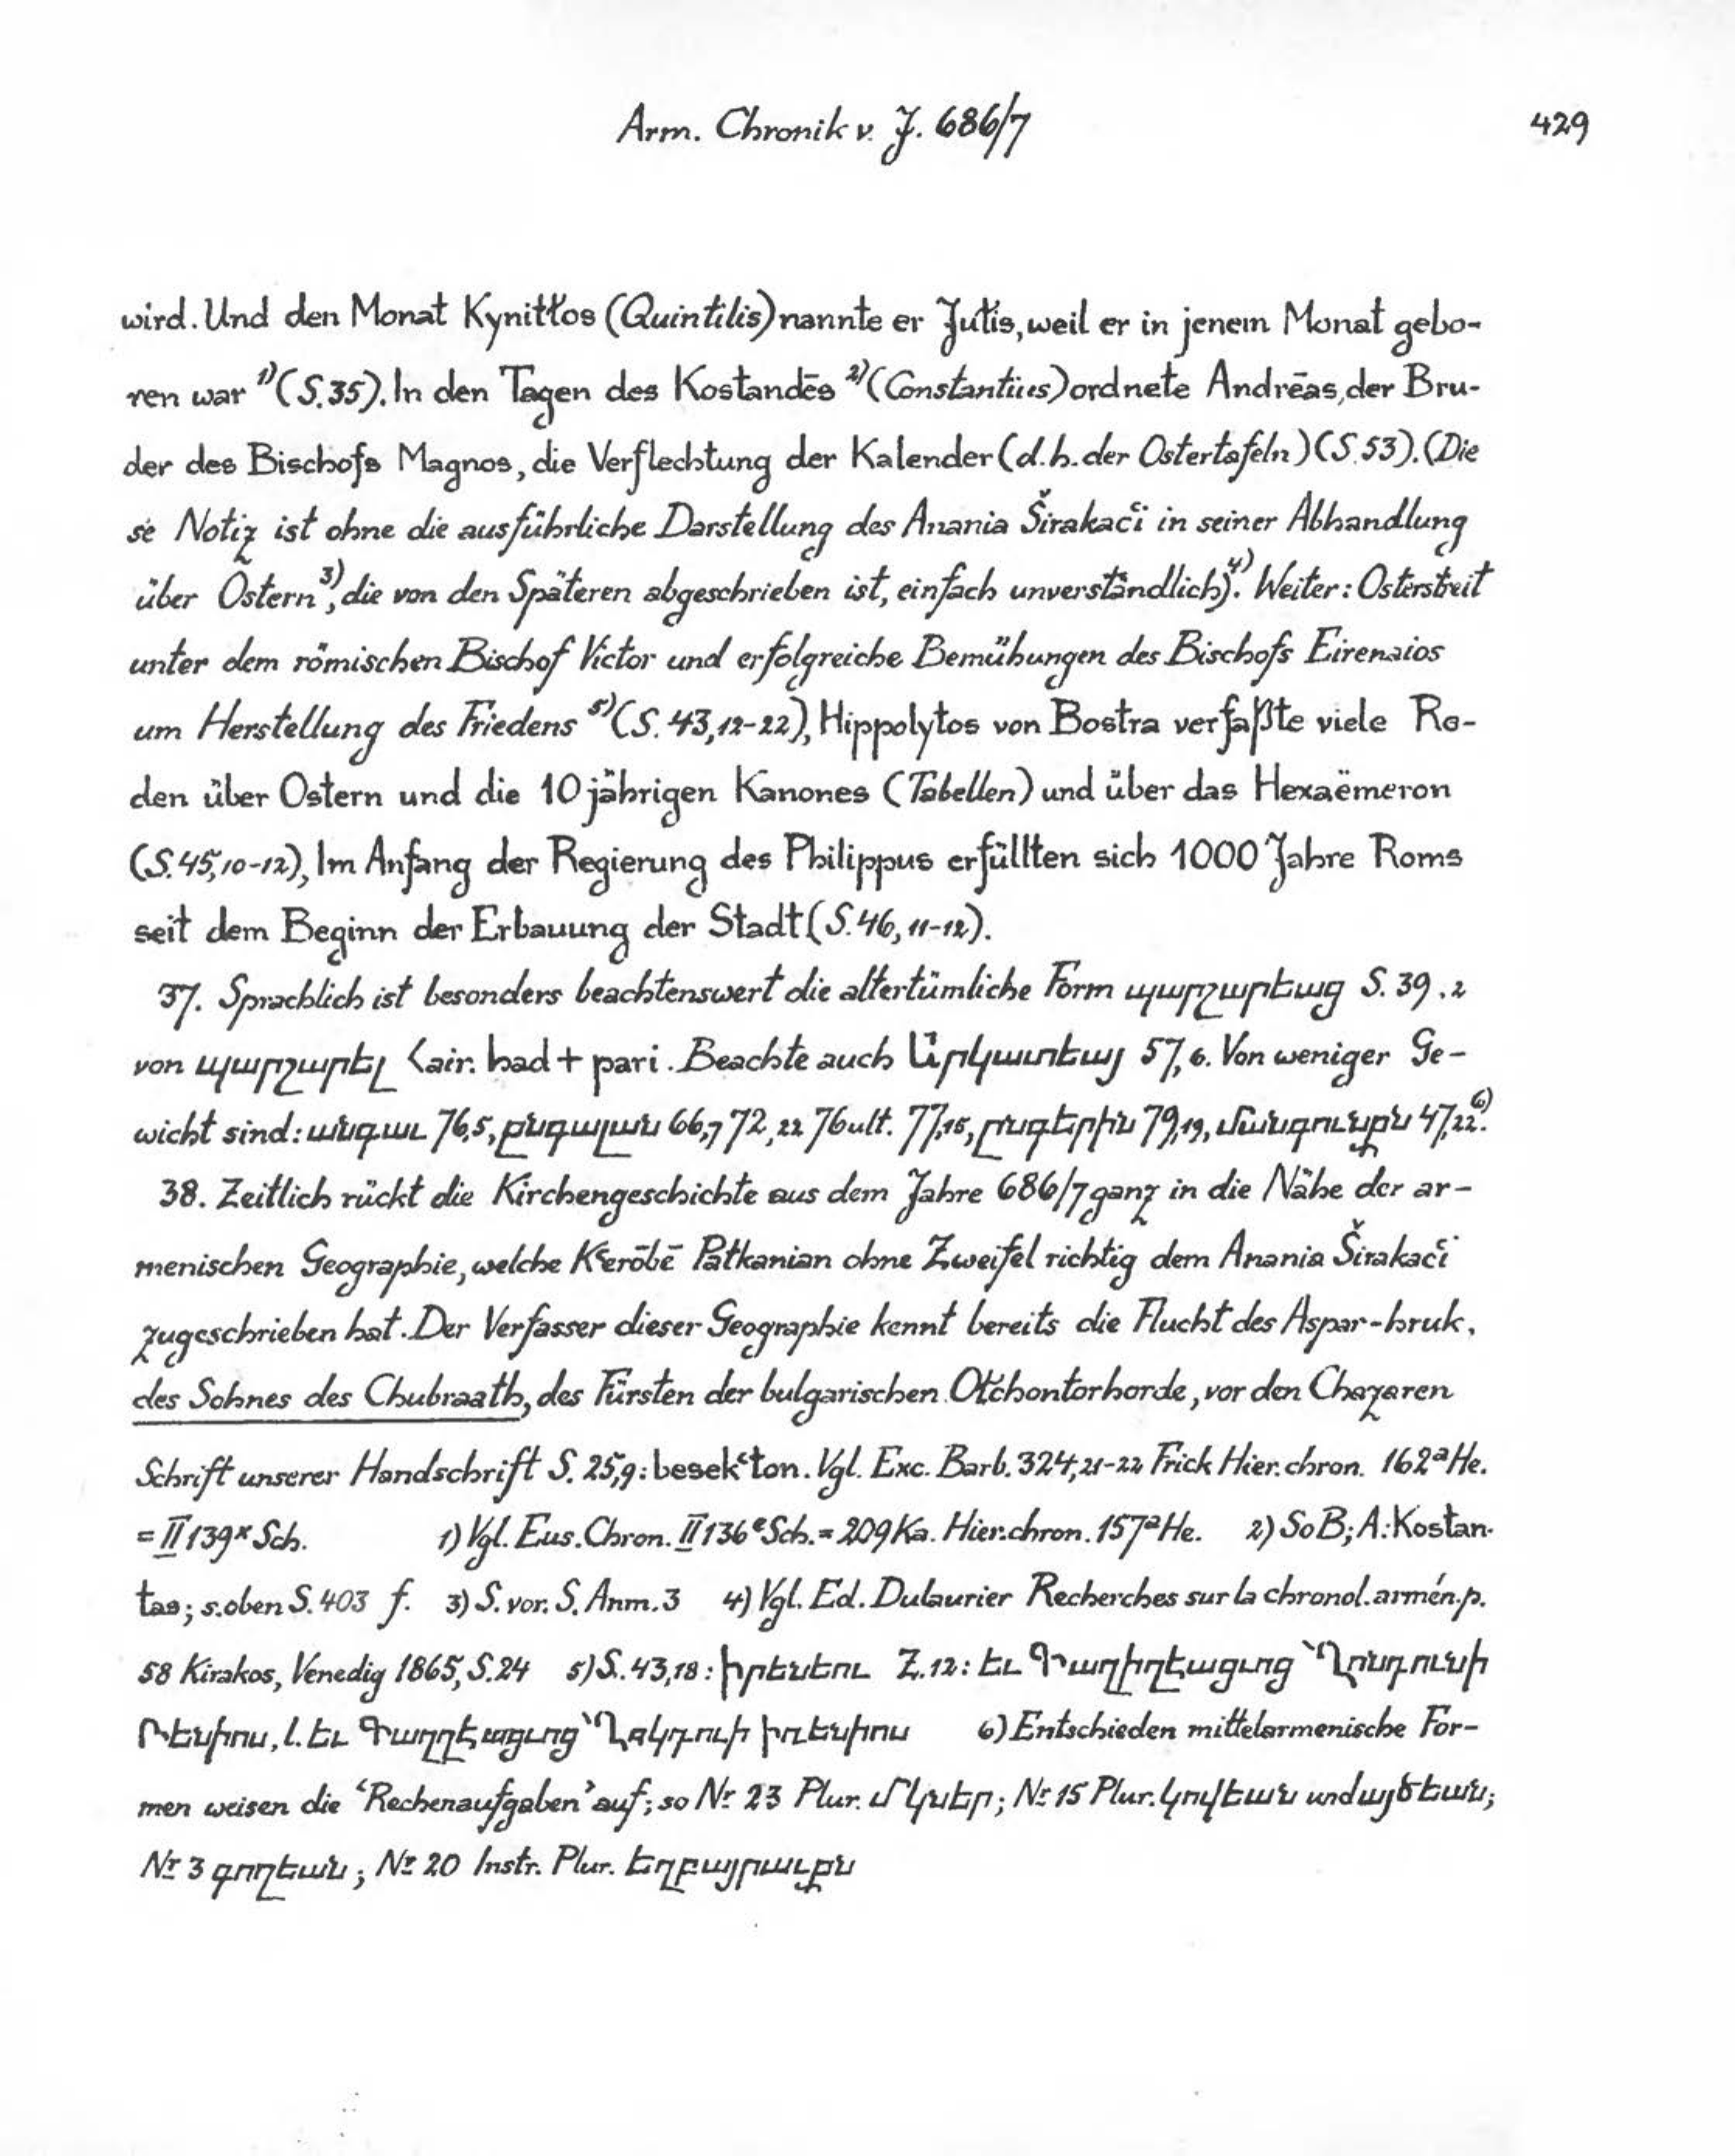 Arm. Chronik v. J. 686/7 429
wird. Und den Monat Kynitłos (Quintilis) nannte er Jułis, weil er in jenem Monat gebo-
ren war ¹⁾ (S. 35). In den Tagen des Kostandēs ²⁾ (Constantius) ordnete Andrēas, der Bru-
der des Bischofs Magnos, die Verflechtung der Kalender (d. h. der Ostertafeln) (S. 53). (Die
se Notiz ist ohne die ausführliche Darstellung des Anania Širakacʿi in seiner Abhandlung
über Ostern ³⁾, die von den Späteren abgeschrieben ist, einfach unverständlich) ⁴⁾. Weiter: Osterstreit
unter dem römischen Bischof Victor und erfolgreiche Bemühungen des Bischofs Eirenaios
um Herstellung des Friedens ⁵⁾ (S. 43,12-22), Hippolytos von Bostra verfaßte viele Re-
den über Ostern und die 10jährigen Kanones (Tabellen) und über das Hexaëmeron
(S. 45,10-12), Im Anfang der Regierung des Philippus erfüllten sich 1000 Jahre Roms
seit dem Beginn der Erbauung der Stadt (S. 46, 11-12).
37. Sprachlich ist besonders beachtenswert die altertümliche Form պարշարեաց S. 39.2
von պարշարել < air. had + pari. Beachte auch Արկատեայ 57,6. Von weniger Ge-
wicht sind: անգաւ 76,5, ընգալան 66,7 72,22 76 ult. 77,15, ընգերին 79,19, մանգունքն 47,22 ⁶⁾.
38. Zeitlich rückt die Kirchengeschichte aus dem Jahre 686/7 ganz in die Nähe der ar-
menischen Geographie, welche Kʿerōbē Patkanian ohne Zweifel richtig dem Anania Širakacʿi
zugeschrieben hat. Der Verfasser dieser Geographie kennt bereits die Flucht des Aspar-hruk,
des Sohnes des Chubraath, des Fürsten der bulgarischen Otchontorhorde, vor den Chazaren
Schrift unserer Handschrift S. 25,9: besekʿton. Vgl. Exc. Barb. 324,21-22 Frick Hier. chron. 162ᵃ He.
= II 139ˣ Sch. 1) Vgl. Eus. Chron. II 136ᵉ Sch. = 209 Ka. Hier. chron. 157ᵃ He. 2) So B; A: Kostan-
tas; s. oben S. 403 f. 3) S. vor. S. Anm. 3 4) Vgl. Ed. Dulaurier Recherches sur la chronol. armén. p.
58 Kirakos, Venedig 1865, S. 24 5) S. 43,18: իրենեու Z. 12: եւ Գաղիղեացւոց
l. եւ Գաղղեացւոց 6) Entschieden mittelarmenische For-
men weisen die ‘Rechenaufgaben’ auf; so Nr. 23 Plur. մկներ; Nr. 15 Plur. կովեան und այծեան;
Nr. 3 գողեան; Nr. 20 Instr. Plur. եղբայրաւքն